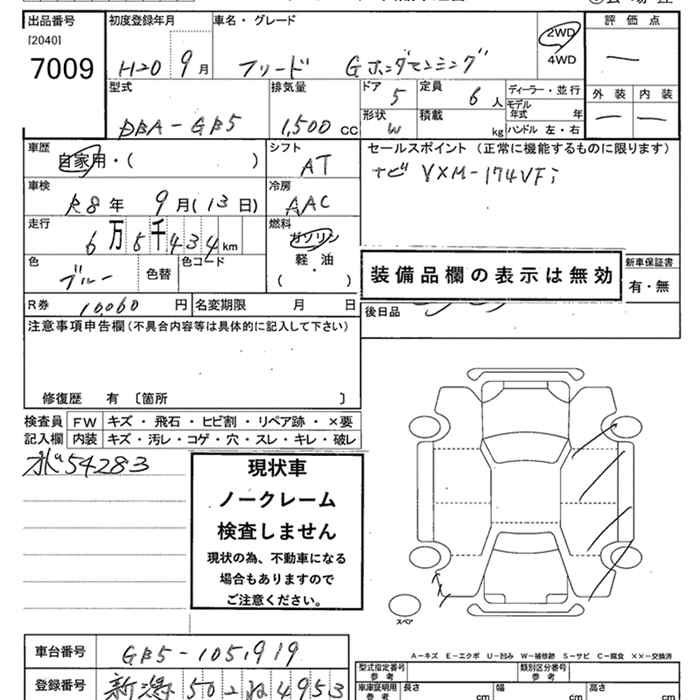 出品番号
[2040]
7009
初度登録年月
H20 9 月
車名・グレード
フリード Gホンダセンシング
2WD
4WD
評価点
外装 内装
型式
DBA-GB5
排気量
1,500 CC
ドア
5
定員
6 人
ディーラー・並行
モデル年式 年
形状
W
積載
kg
ハンドル 左・右
車歴
自家用・( )
シフト
AT
セールスポイント (正常に機能するものに限ります)
ナビ VXM-174VFi
車検
R8 年 9 月 (13 日)
冷房
AAC
走行
6 万 5 千 4 3 4 km
燃料
ガソリン
軽・油
( )
色
ブルー
色替
色コード
装備品欄の表示は無効
新車保証書
有・無
R券 10060 円
名変期限 月 日
後日品
注意事項申告欄 (不具合内容等は具体的に記入して下さい)
修復歴 有 〔箇所 〕
検査員記入欄
FW キズ・飛石・ヒビ割・リペア跡・×要
内装 キズ・汚レ・コゲ・穴・スレ・キレ・破レ
54283
現状車
ノークレーム
検査しません
現状の為、不動車になる
場合もありますので
ご注意ください。
スペア
A-キズ E-エクボ U-凹み W-補修跡 S-サビ C-腐食 X-交換 XX-交換済
車台番号 GB5-1051919
登録番号 新潟 502 ぬ 4953
型式指定番号
参考
類別区分番号
参考
車庫証明用
参考
長さ cm
幅 cm
高さ cm